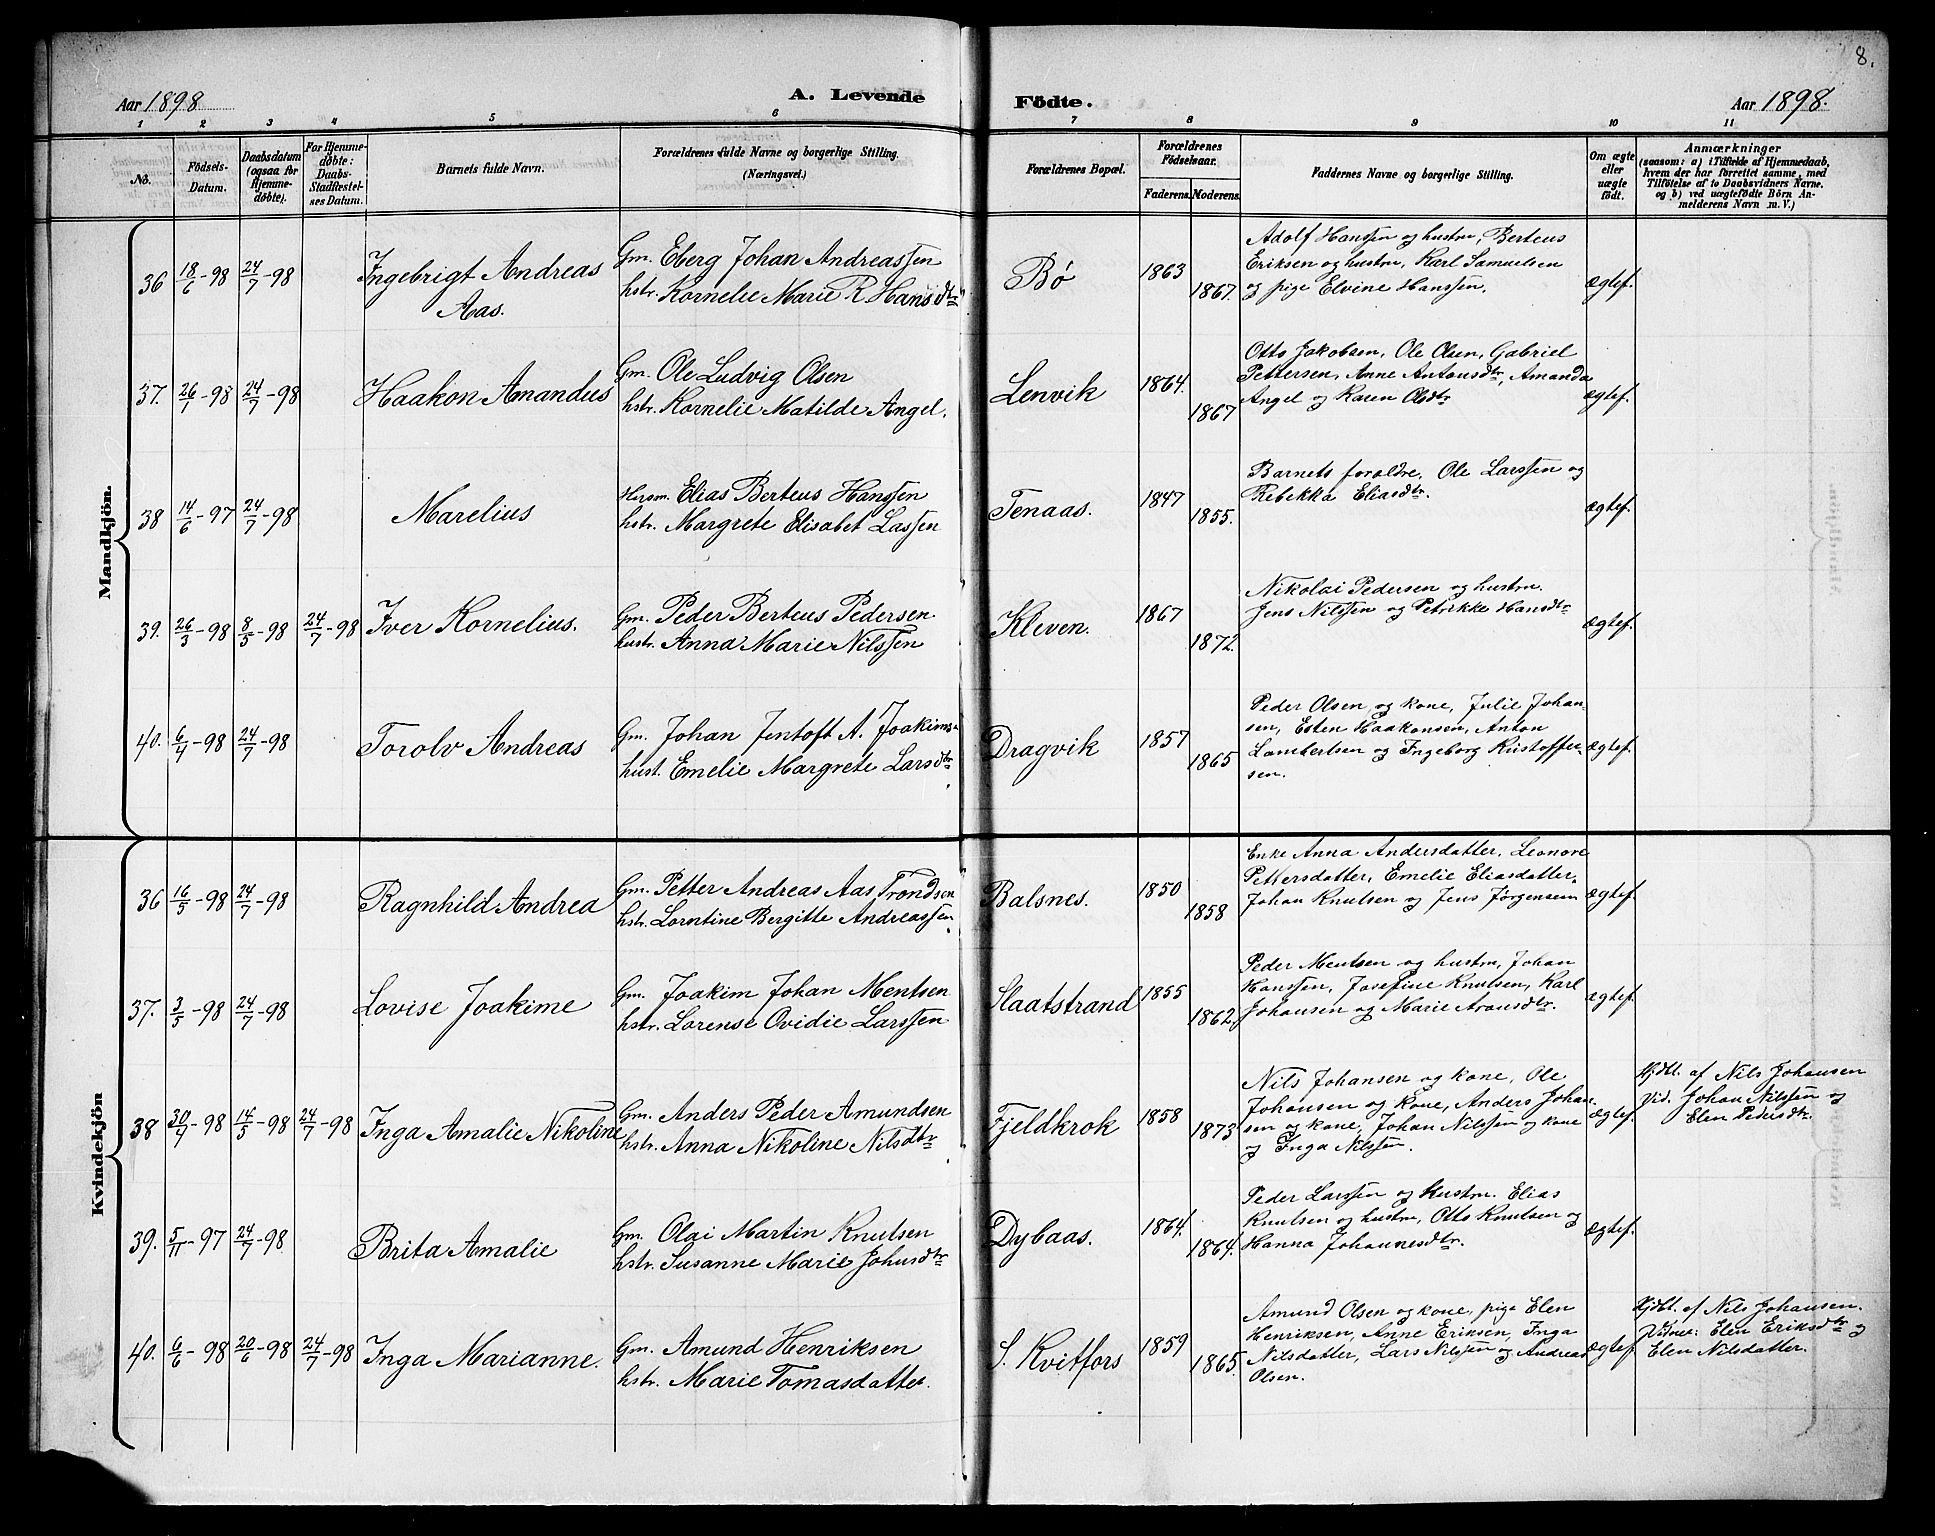 8.
Aar 1898
A. Levende
Födte.
Aar 1898.
1 2 3 4 5 6 7 8 9 10 11
No.
Födsels-
Datum.
Daabsdatum
(ogsaa for
Hjemme-
döbte).
For Hjemme-
döbte:
Daabs-
Stadfæstel-
ses Datum.
Barnets fulde Navn.
Forældrenes fulde Navne og borgerlige Stilling.
(Næringsvei.)
Forældrenes Bopæl.
Forældrenes
Födselsaar.
Faderens. Moderens.
Faddernes Navne og borgerlige Stilling.
Om ægte
eller
uægte
födt.
Anmærkninger
(saasom: a) i Tilfælde af Hjemmedaab,
hvem der har forrettet samme, med
Tilföielse af to Daabsvidners Navne,
og b) ved uægtefödte Börn An-
melderens Navn m. V.)
Mandkjön.
36 18/6-98 24/7-98
Ingebrigt Andreas
Aas.
Gm. Eberg Johan Andreassen
hstr. Kornelie Marie R. Hansdtr
Bø
1863
1867.
Adolf Hanssen og hustru, Berteus
Eriksen og hustru, Karl Samuelsen
og pige Elvine Hanssen.
ægtef.
37. 26/1-98 24/7-98
Haakon Amandus
Gm. Ole Ludvig Olsen
hstr. Kornelie Matilde Angel.
Lenvik
1864.
1867
Otto Jakobsen, Ole Olsen, Gabriel
Pettersen, Anne Antonsdtr, Amanda
Angel og Karen Olsdtr
ægtef.
38 14/6-97 24/7-98
Marelius
Husm. Elias Berteus Hanssen
hstr. Margrete Elisabet Lassen
Tenaas.
1847
1855.
Barnets foræld­re, Ole Larssen og
Rebekka Eliasdtr.
ægtef.
39. 26/3-98 8/5-98 24/7-98
Iver Kornelius.
Gm. Peder Berteus Pedersen
hustr. Anna Marie Nilssen
Kleven.
1867
1872.
Nikolai Pedersen og hustru.
Jens Nilssen og Petrikke Hansdtr
ægtef.
40. 6/4-98 24/7-98
Torolv Andreas
Gm. Johan Jentoft A. Joakims-
hust. Emelie Margrete Larsdtr
Dragvik
1857
1865
Peder Olsen og kone, Julie Johan-
sen, Esten Haakonsen, Anton
Lambertsen og Ingeborg Kristoffer-
sen.
ægtef.
Kvindekjön
36 16/5-98 24/7-98
Ragnhild Andrea
Gm. Petter Andreas Aas Trondsen
hstr. Lorntine Bergitte Andreassen
Balsnes.
1850
1858
Enke Anna Andersdatter, Leonore
Pettersdatter, Emelie Eliasdatter,
Johan Knutsen og Jens Jörgensen
ægtef.
37. 3/5-98 24/7-98
Lovise Joakime
Gm. Joakim Johan Mentsen
hstr. Lorense Ovidie Larssen
Slaatstrand
1855
1862.
Peder Mentsen og hustru, Johan
Hanssen, Josefine Knutsen, Karl
Johansen og Marie Aronsdtr.
ægtef.
38 30/4-98 14/5-98 24/7-98
Inga Amalie Nikoline
Gm. Anders Peder Amundsen
hstr. Anna Nikoline Nilsdtr
Fjeldkrok
1858
1873
Nils Johansen og kone, Ole
Johansen og kone, Anders Johan-
sen og kone, Johan Nilssen og kone
og Inga Nilssen.
ægtef.
Hjdbt. af Nils Johansen
Vid. Johan Nilssen og
Elen Pedersdtr.
39. 5/11-97 24/7-98
Brita Amalie
Gm. Olai Martin Knutsen
hstr. Susanne Marie Johnsdtr
Dybaas.
1864.
1864.
Peder Larssen og hustru. Elias
Knutsen og hustru, Otto Knutsen og
Hanna Johannesdtr.
ægtef.
40. 6/6-98 20/6-98 24/7-98
Inga Marianne.
Gm. Amund Henriksen
hstr. Marie Tomasdatter.
S. Kvitfors
1859
1865.
Amund Olsen og kone, pige Elen
Henriksen, Anne Eriksen, Inga
Nilsdatter, Lars Nilssen og Andreas
Olsen.
ægtef.
Hjdbt. af Nils Johansen.
Vidner: Elen Eriksdtr og
Elen Nilsdatter.